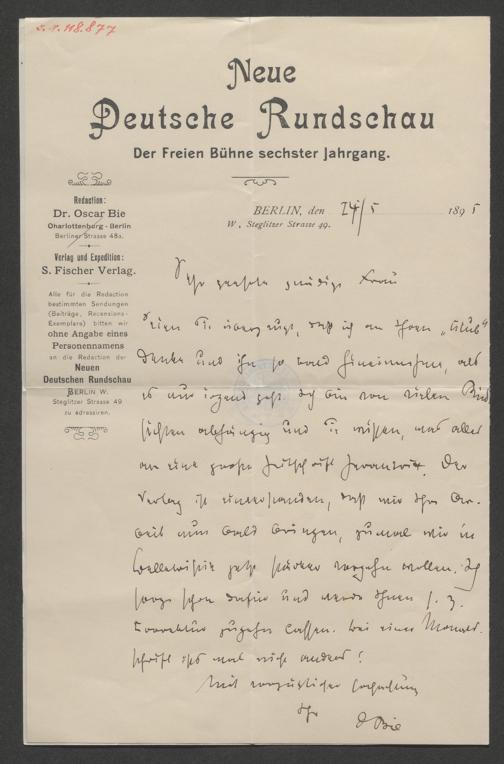 S. 1. 118.877
Neue
Deutsche Rundschau
Der Freien Bühne sechster Jahrgang.
Redaction:
Dr. Oscar Bie
Charlottenburg - Berlin
Berliner Strasse 48a.
Verlag und Expedition:
S. Fischer Verlag.
Alle für die Redaction
bestimmten Sendungen
(Beiträge, Recensions-
Exemplare) bitten wir
ohne Angabe eines
Personennamens
an die Redaction der
Neuen
Deutschen Rundschau
BERLIN W.
Steglitzer Strasse 49
zu adressiren.
BERLIN, den 24/5 1895
W, Steglitzer Strasse 49.
Sehr geehrte gnädige Frau
Seien Sie überzeugt, daß ich an Ihren „Club“
denke und ihn so bald hineinnehme, als
es nur irgend geht. Ich bin von vielen Rück
sichten abhängig und Sie wissen, was alles
an eine große Zeitschrift herantritt. Der
Verlag ist einverstanden, daß wir Ihre Ar-
beit nun bald bringen, zumal wir in
Belletristik jetzt stärker vorgehn wollen. Ich
sorge schon dafür und werde Ihnen s. Z.
Correktur zugehn lassen. Bei einer Monats-
schrift ists mal nicht anders!
Mit vorzüglicher Hochachtung
Ihr
O Bie